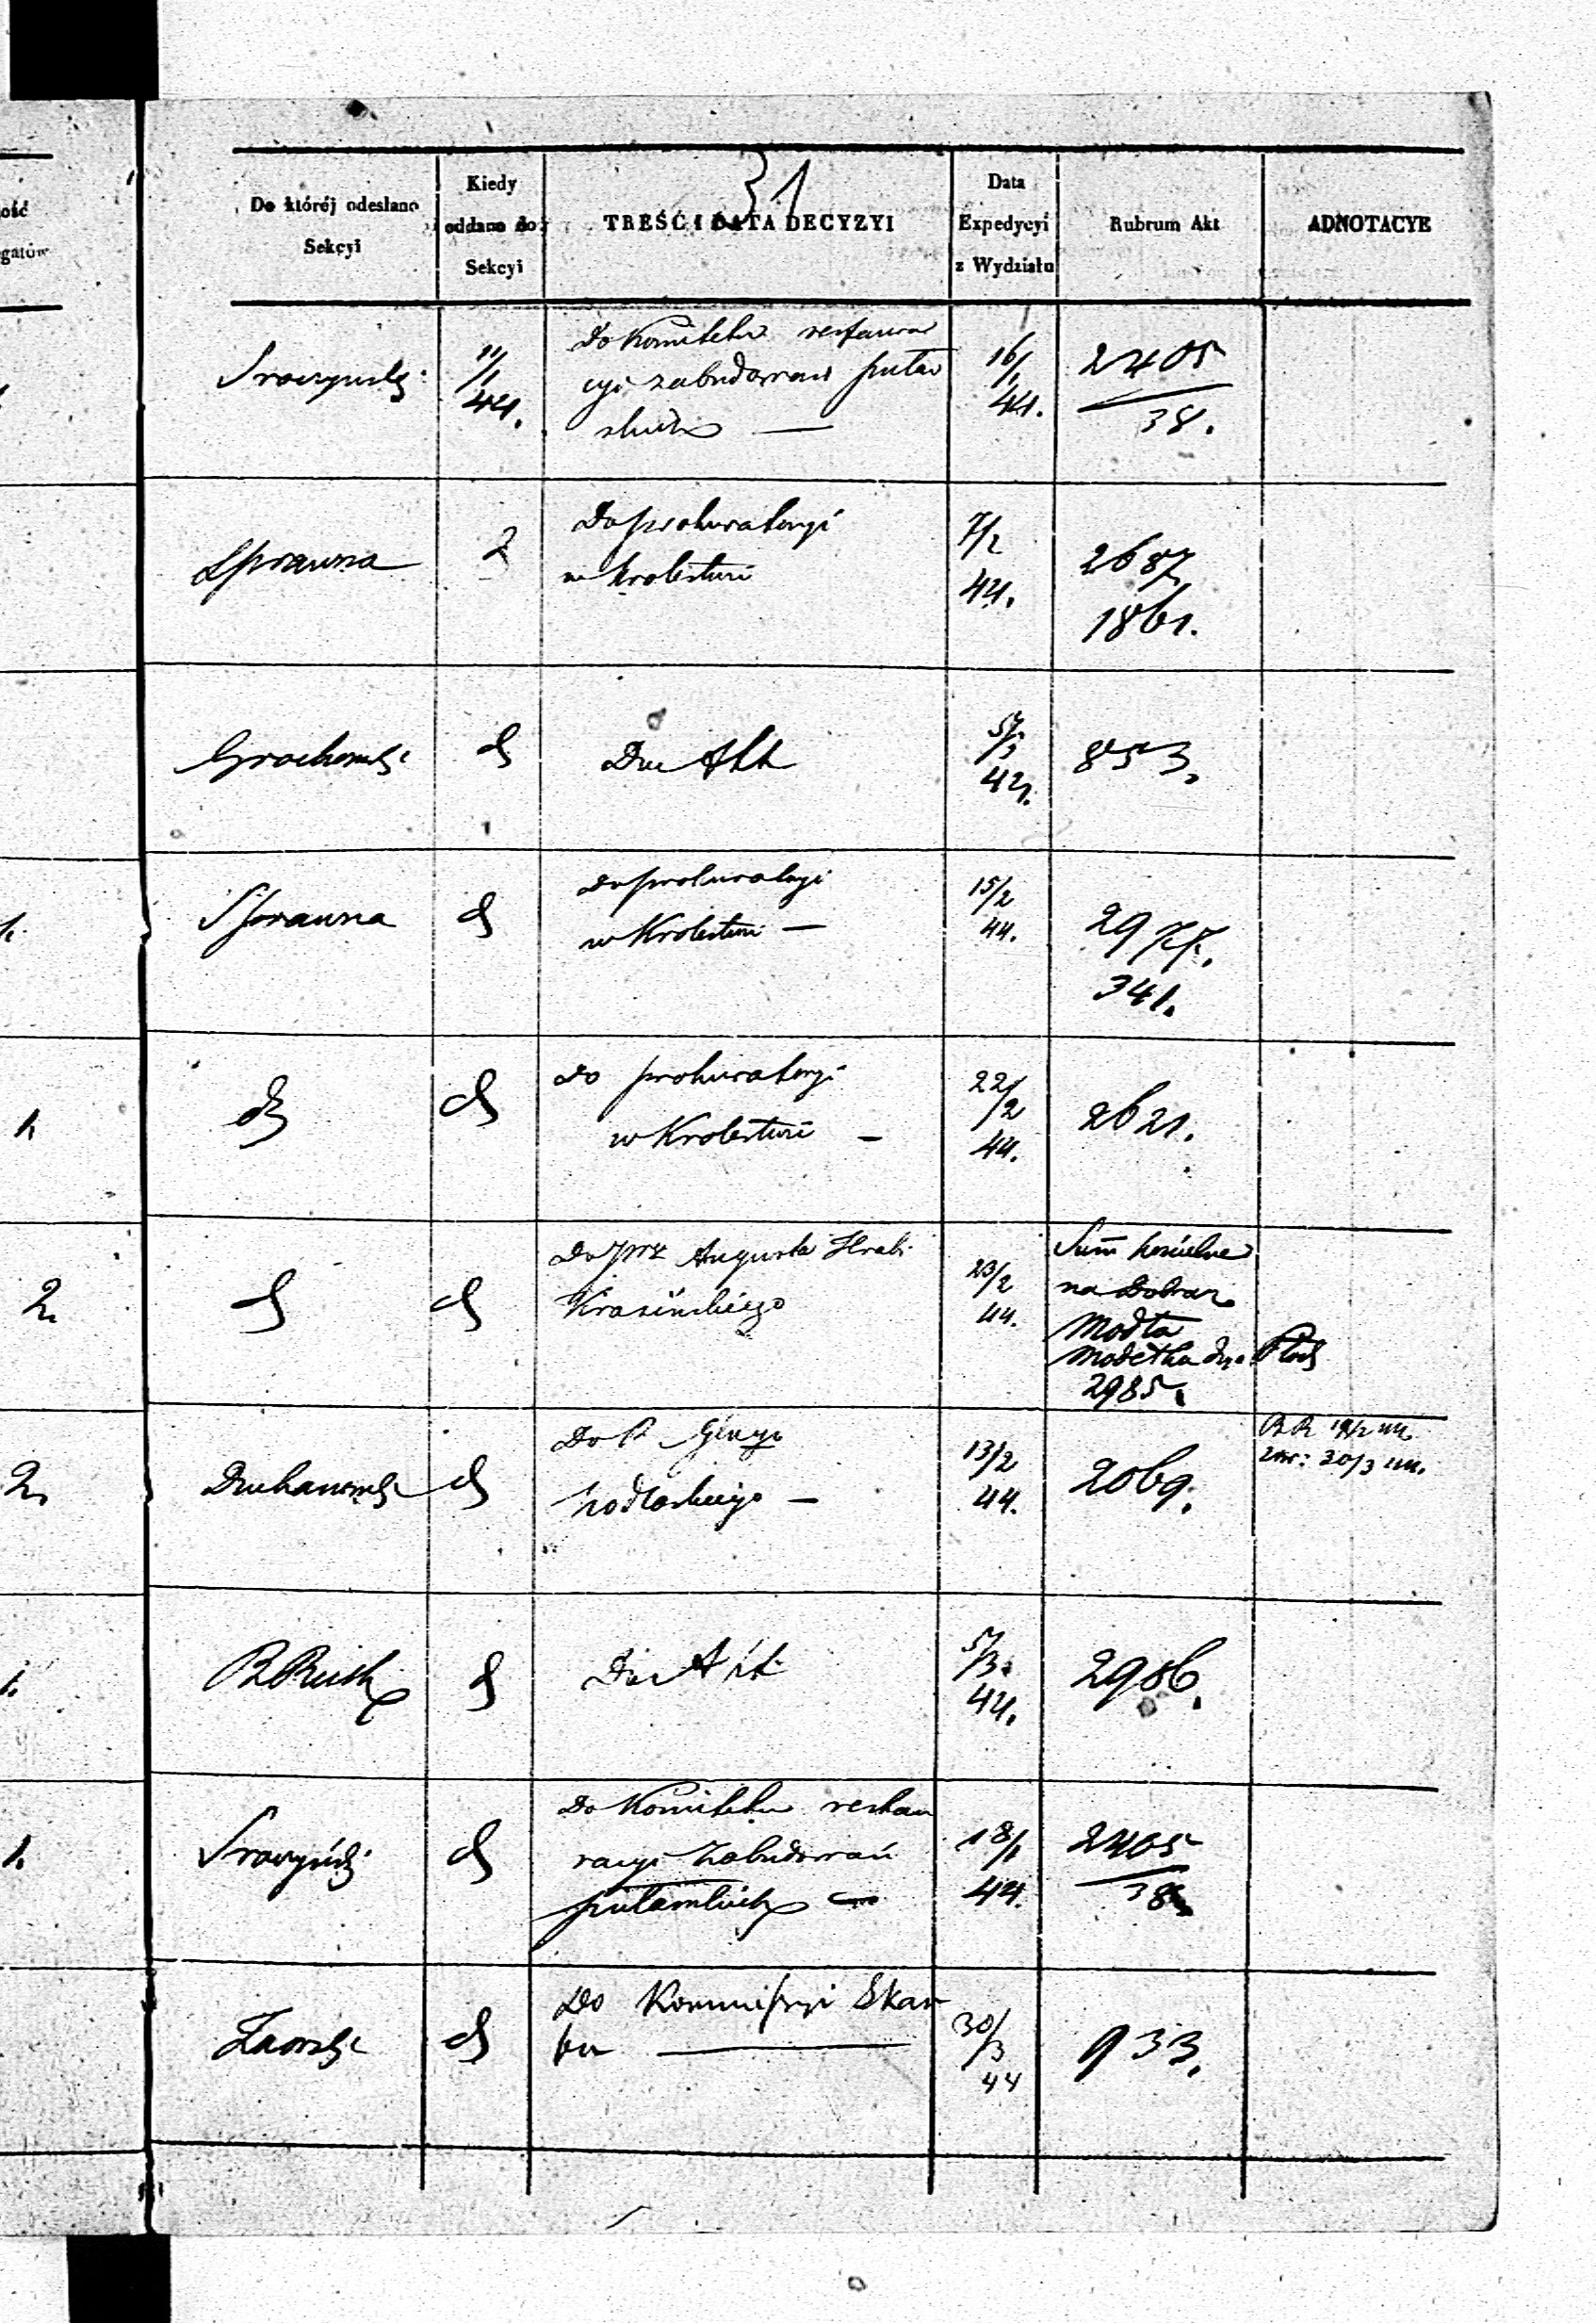 ość
gatów
31
Do któréj odesłano
Sekcyi
Kiedy
oddano do
Sekcyi
TREŚĆ I DATA DECYZYI
Data
Expedycyi
z Wydziału
Rubrum Akt
ADNOTACYE
11/1
44.
Do Komitetu restaura
cyi zabudowań puław
skich —
16/1
44.
2405
38.
Sprawna
Do prokuratoryi
w Krolestwie
7/2
44.
2687
1861.
Grochowski
d
Do Akt
5/3
44.
853.
Sprawna
d
Do prokuratoryi
w Krolestwie —
15/2
44.
2977.
341.
1.
d
d
do prokuratoryi
w Krolestwie —
22/2
44.
2621.
2.
d
d
Do JWW Augusta Hrabi
Krasińskiego
23/2
44.
Summ kościelne
na Dobrac
Modła
2985.
2.
d
Do P
podlaskiego —
13/2
44.
2069.
30/3 44.
1.
d
Do Akt
5/3
44.
2986.
1.
d
Do Komitetu restau
racyi zabudowań
puławskich —
18/1
44.
2405
38
d
Do Kommissyi Skar
bu —
30/3
44
933.